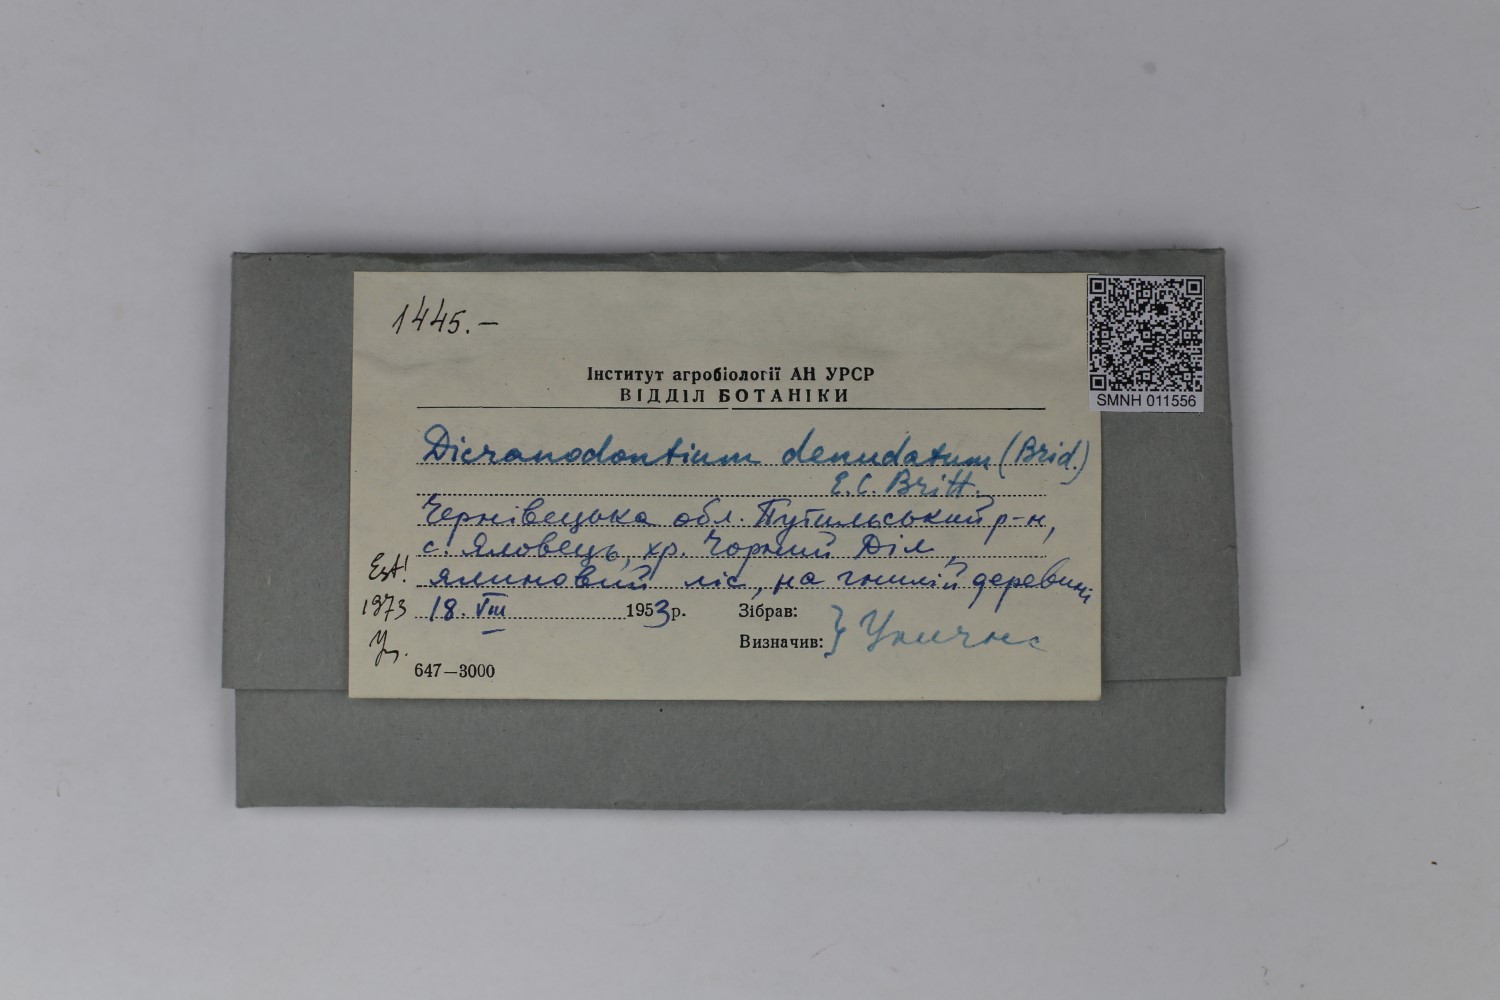 1445.—
Інститут агробіології АН УРСР
ВІДДІЛ БОТАНІКИ
SMNH 011556
Dicranodontium denudatum (Brid.)
E.C. Britt.
Чернівецька обл. Путильський р-н,
с. Яловець, хр. Чорний Діл,
ялиновий ліс, на гнилій деревині
Est!
1973
18. VIII 1953 р. Зібрав:
Визначив: } Улична
647—3000